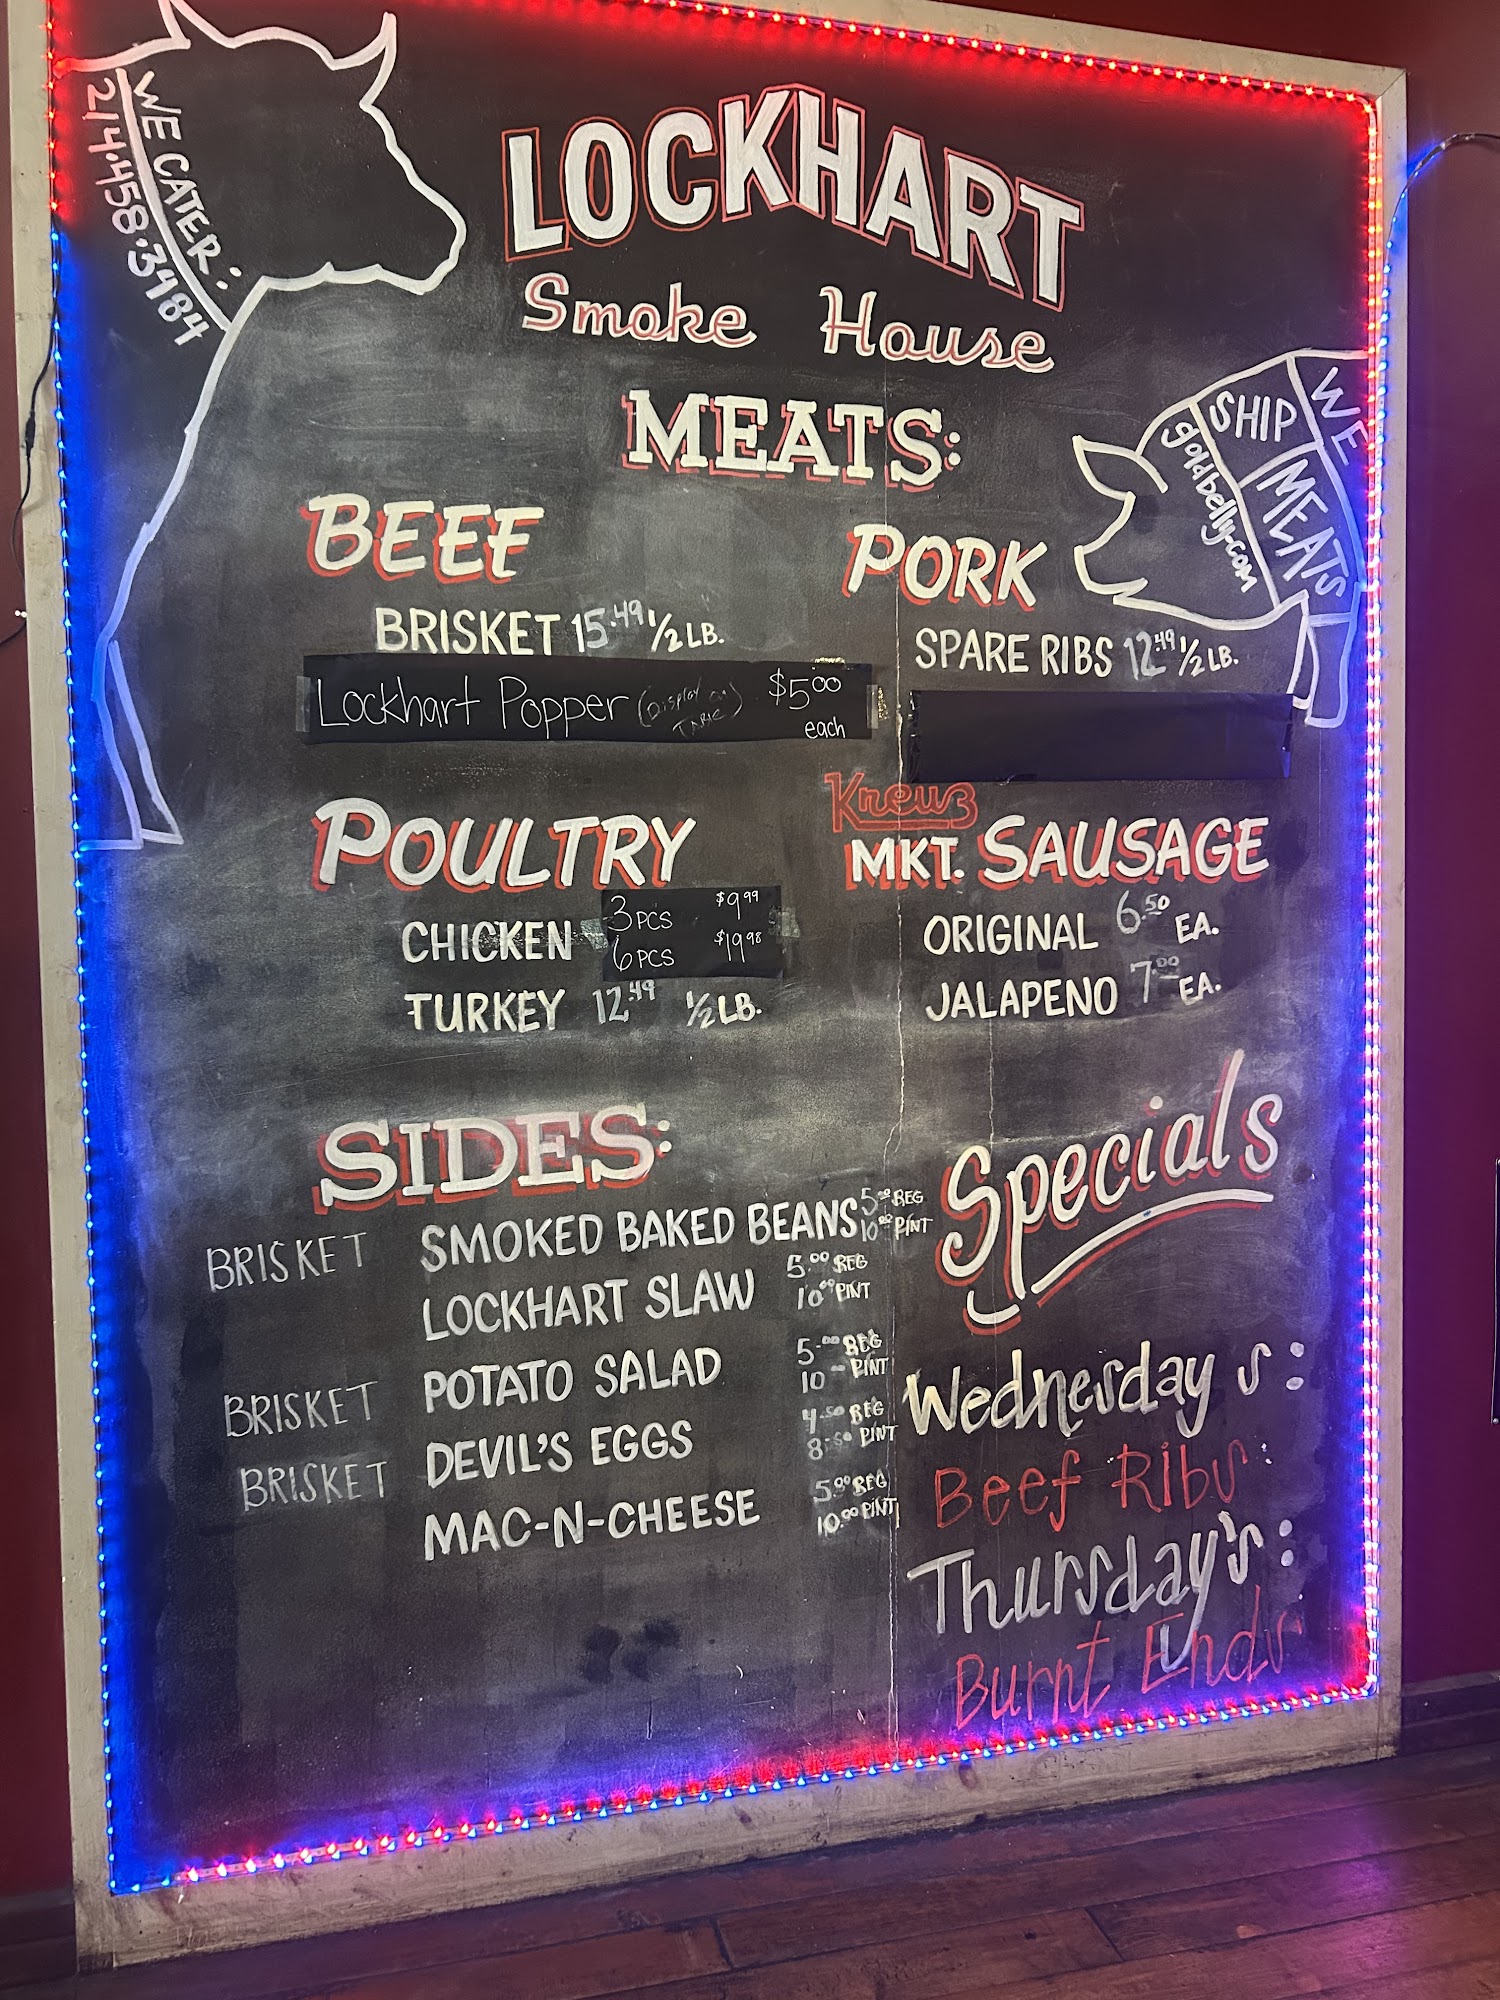 WE CATER:
214·458·3484
LOCKHART
Smoke House
MEATS:
WE
SHIP
MEATS
goldbelly.com
BEEF
BRISKET 15.49 1/2 LB.
Lockhart Popper (Display on Table) $5.00 each
PORK
SPARE RIBS 12.49 1/2 LB.
POULTRY
CHICKEN 3 PCS $9.99
6 PCS $19.98
TURKEY 12.49 1/2 LB.
Kreuz
MKT. SAUSAGE
ORIGINAL 6.50 EA.
JALAPENO 7.00 EA.
SIDES:
BRISKET SMOKED BAKED BEANS 5.00 REG
10.00 PINT
LOCKHART SLAW 5.00 REG
10.00 PINT
BRISKET POTATO SALAD 5.00 REG
10 - PINT
BRISKET DEVIL'S EGGS 4.50 REG
8.50 PINT
MAC-N-CHEESE 5.00 REG
10.00 PINT
Specials
Wednesday s:
Beef Ribs
Thursday's:
Burnt Ends